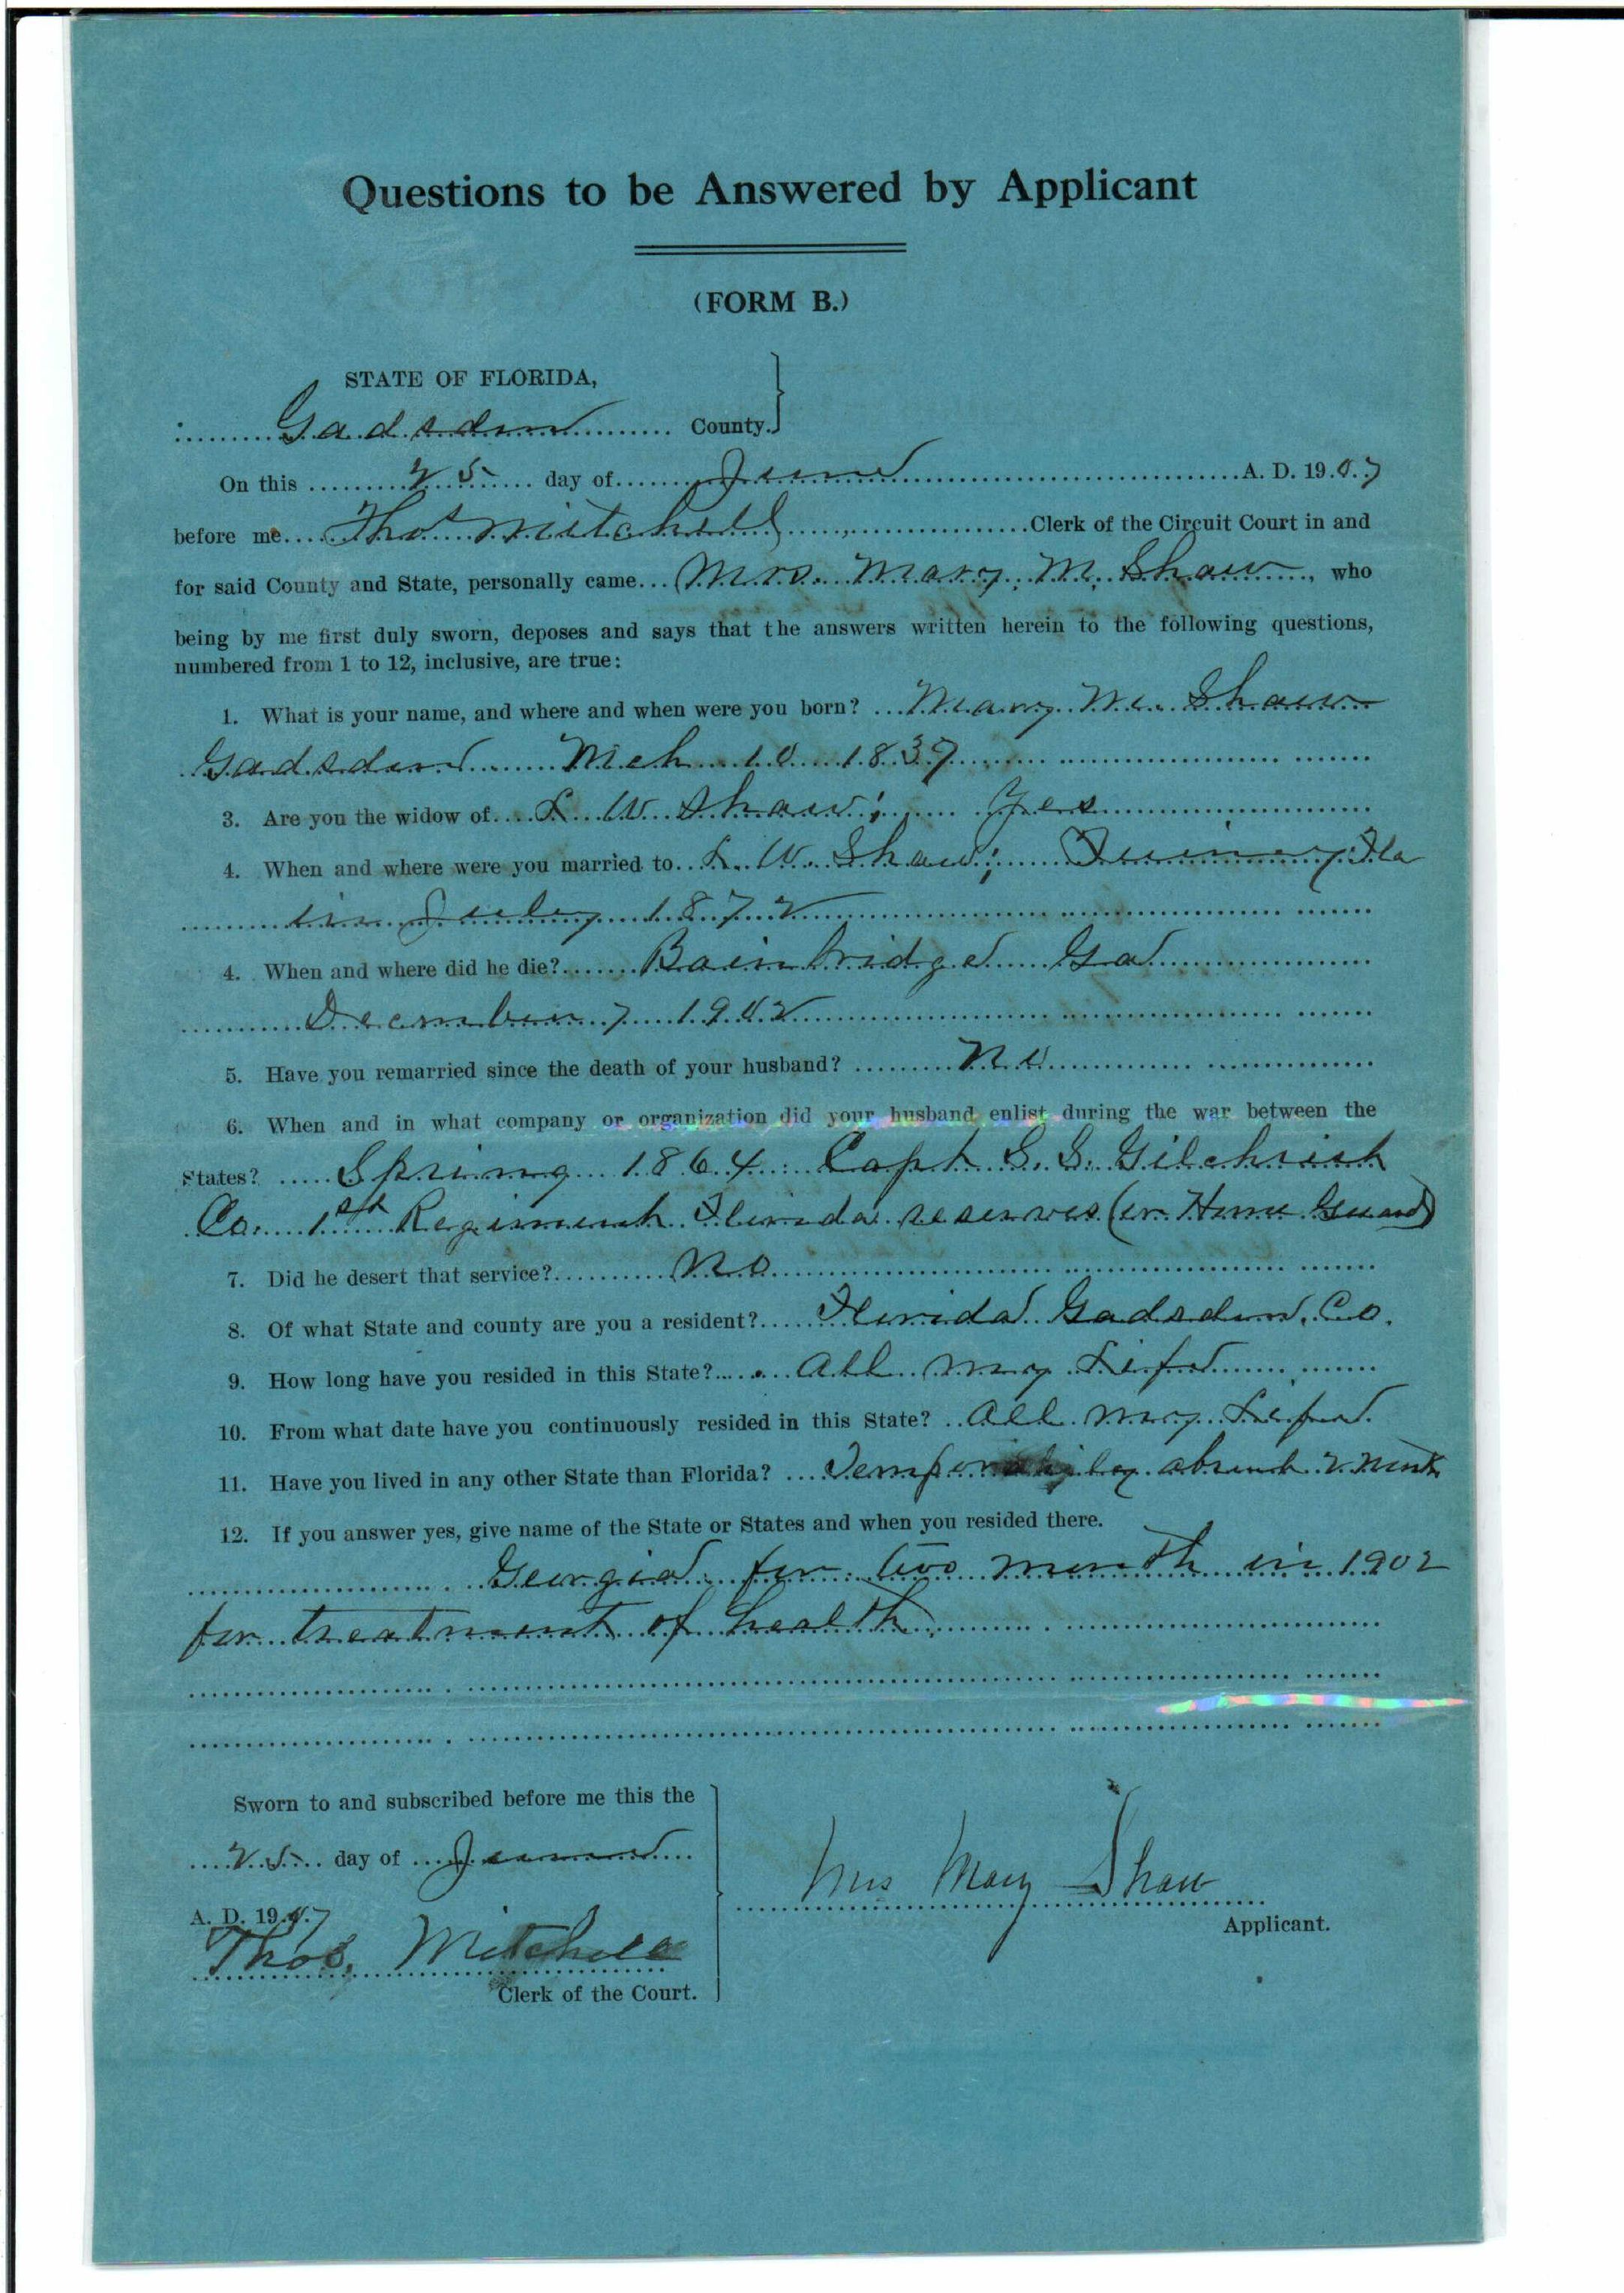 Questions to be Answered by Applicant
(FORM B.)
STATE OF FLORIDA,
Gadsden County.
On this 25 day of June A. D. 1907
before me Thos Mitchell Clerk of the Circuit Court in and
for said County and State, personally came Mrs. Mary M. Shaw, who
being by me first duly sworn, deposes and says that the answers written herein to the following questions,
numbered from 1 to 12, inclusive, are true:
1. What is your name, and where and when were you born? Mary M. Shaw
Gadsden Mch 10 1837
3. Are you the widow of L W Shaw; Yes
4. When and where were you married to L. W. Shaw; Quincy Fla
in July 1872
4. When and where did he die? Bainbridge Ga
December 7 1902
5. Have you remarried since the death of your husband? No
6. When and in what company or organization did your husband enlist during the war between the
States? Spring 1864 Capt S. S. Gilchrist
Co. 1st Regiment Florida reserves (or Home Guard)
7. Did he desert that service? No
8. Of what State and county are you a resident? Florida Gadsden Co.
9. How long have you resided in this State? All my Life
10. From what date have you continuously resided in this State? All my Life
11. Have you lived in any other State than Florida? absent 2 month
12. If you answer yes, give name of the State or States and when you resided there.
Georgia for two month in 1902
for treatment of health.
Sworn to and subscribed before me this the
25 day of June
A. D. 1907
Thos. Mitchell
Clerk of the Court.
Mrs Mary Shaw
Applicant.